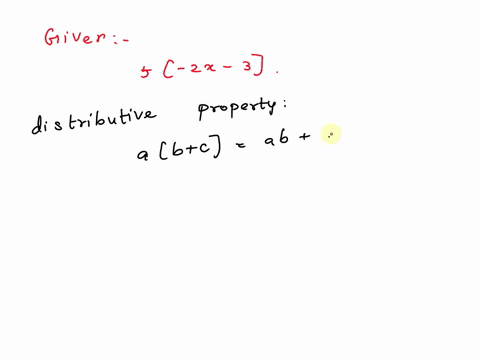 Given:-
5 [-2x - 3].
distributive property:
a [b+c] = ab +